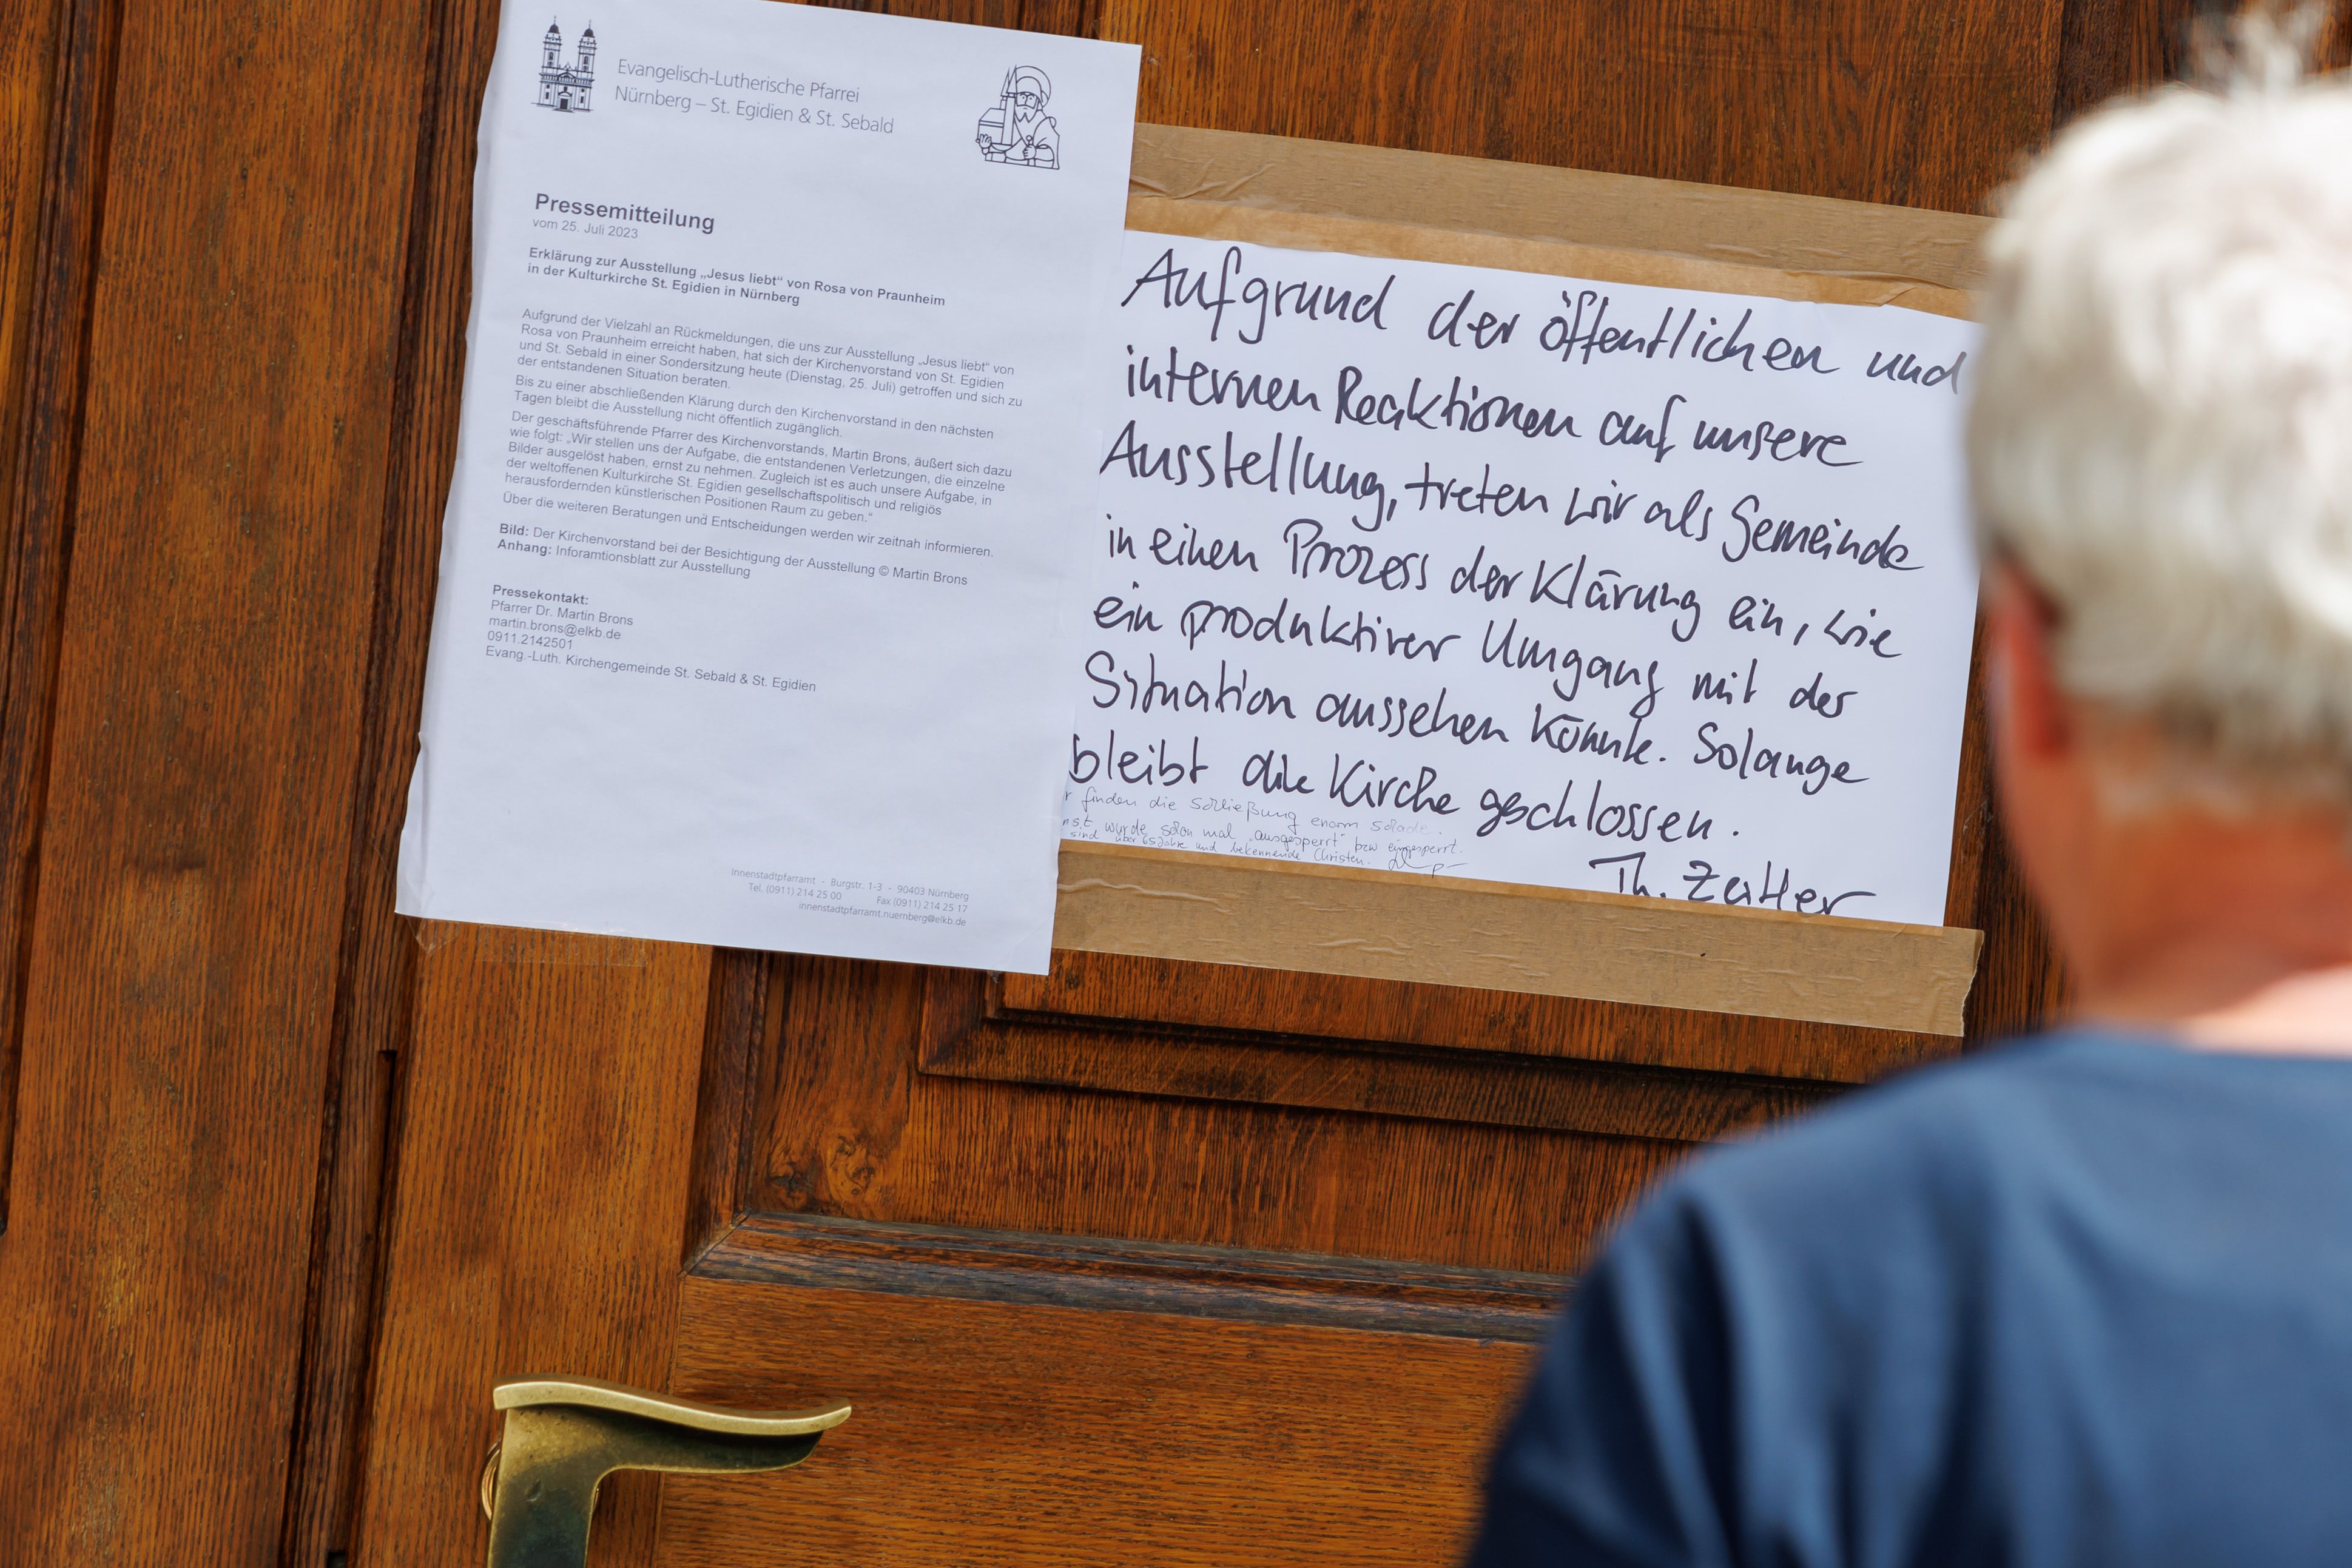 Evangelisch-Lutherische Pfarrei
Nürnberg – St. Egidien & St. Sebald
Pressemitteilung
vom 25. Juli 2023
Erklärung zur Ausstellung „Jesus liebt“ von Rosa von Praunheim
in der Kulturkirche St. Egidien in Nürnberg
Aufgrund der Vielzahl an Rückmeldungen, die uns zur Ausstellung „Jesus liebt“ von
Rosa von Praunheim erreicht haben, hat sich der Kirchenvorstand von St. Egidien
und St. Sebald in einer Sondersitzung heute (Dienstag, 25. Juli) getroffen und sich zu
der entstandenen Situation beraten.
Bis zu einer abschließenden Klärung durch den Kirchenvorstand in den nächsten
Tagen bleibt die Ausstellung nicht öffentlich zugänglich.
Der geschäftsführende Pfarrer des Kirchenvorstands, Martin Brons, äußert sich dazu
wie folgt: „Wir stellen uns der Aufgabe, die entstandenen Verletzungen, die einzelne
Bilder ausgelöst haben, ernst zu nehmen. Zugleich ist es auch unsere Aufgabe, in
der weltoffenen Kulturkirche St. Egidien gesellschaftspolitisch und religiös
herausfordernden künstlerischen Positionen Raum zu geben.“
Über die weiteren Beratungen und Entscheidungen werden wir zeitnah informieren.
Bild: Der Kirchenvorstand bei der Besichtigung der Ausstellung © Martin Brons
Anhang: Inforamtionsblatt zur Ausstellung
Pressekontakt:
Pfarrer Dr. Martin Brons
martin.brons@elkb.de
0911.2142501
Evang.-Luth. Kirchengemeinde St. Sebald & St. Egidien
Innenstadtpfarramt - Burgstr. 1-3 - 90403 Nürnberg
Tel. (0911) 214 25 00 Fax (0911) 214 25 17
innenstadtpfarramt.nuernberg@elkb.de
Aufgrund der öffentlichen und
internen Reaktionen auf unsere
Ausstellung, treten wir als Gemeinde
in einen Prozess der Klärung ein, wie
ein produktiver Umgang mit der
Situation aussehen könnte. Solange
bleibt die Kirche geschlossen.
finden die Schließung enorm schade.
wurde schon mal „ausgesperrt“ bzw eingesperrt.
sind über 65 Jahre und bekennende Christen.
Th. Zeitler